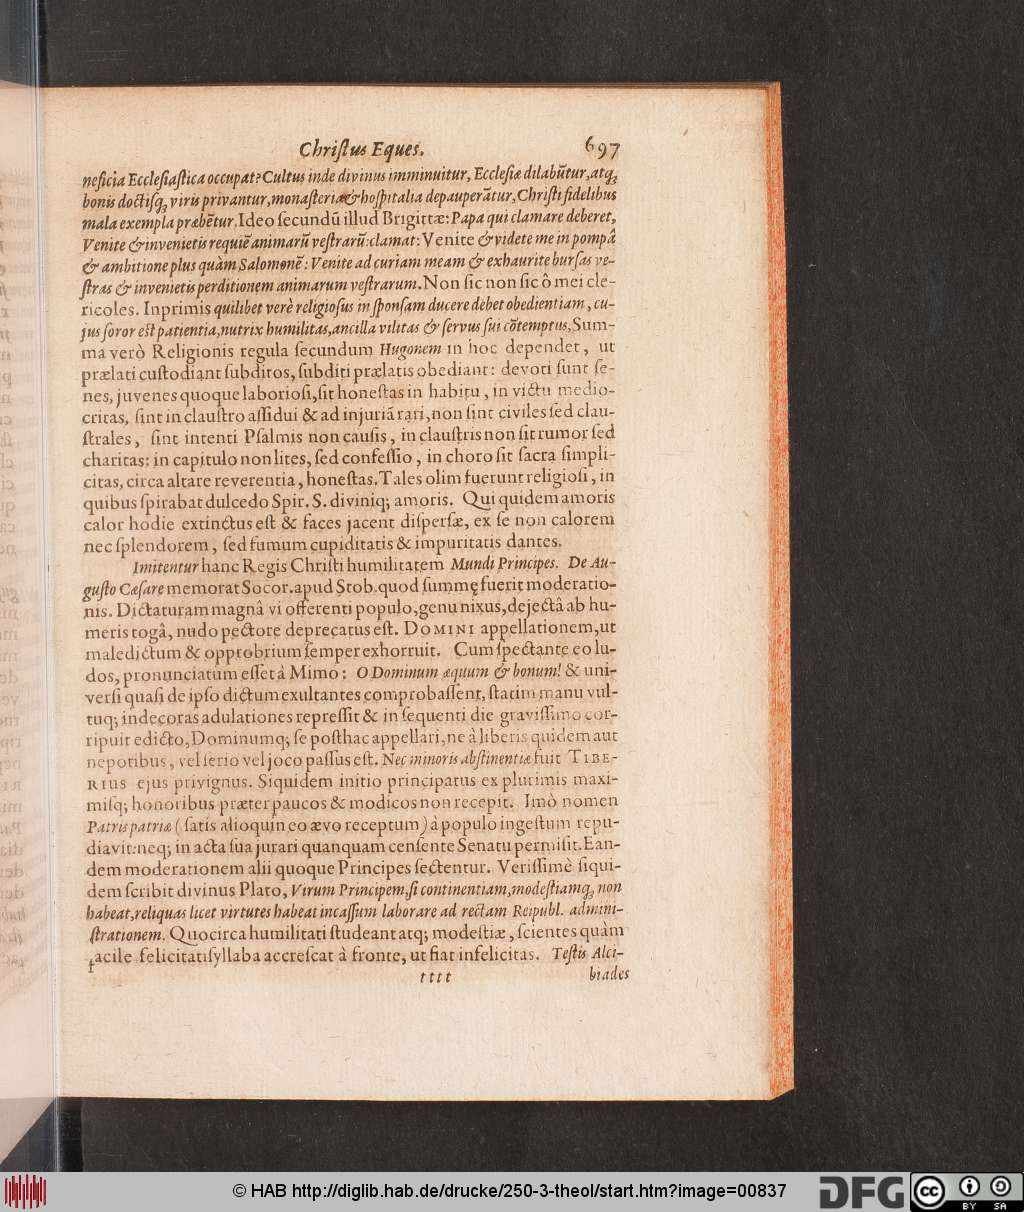 Chriſtus Eques. 697
neficia Eccleſiaſtica occupat? Cultus inde divinus imminuitur, Eccleſiæ dilabũtur, atq;
bonis doctiſq; viris privantur, monaſteria & hoſpitalia depauperãtur, Chriſti fidelibus
mala exempla præbẽtur. Ideo ſecundũ illud Brigittæ: Papa qui clamare deberet,
Venite & invenietis requiẽ animarũ veſtrarũ: clamat: Venite & videte me in pompâ
& ambitione plus quàm Salomonẽ: Venite ad curiam meam & exhaurite burſas ve-
ſtras & invenietis perditionem animarum veſtrarum. Non ſic non ſic ô mei cle-
ricoles. Inprimis quilibet verè religioſus in ſponſam ducere debet obedientiam, cu-
jus ſoror eſt patientia, nutrix humilitas, ancilla vilitas & ſervus ſui cõtemptus, Sum-
ma verò Religionis regula ſecundum Hugonem in hoc dependet, ut
prælati cuſtodiant ſubditos, ſubditi prælatis obediant: devoti ſunt ſe-
nes, juvenes quoque laborioſi, ſit honeſtas in habitu, in victu medio-
critas, ſint in clauſtro aſſidui & ad injuriã rari, non ſint civiles ſed clau-
ſtrales, ſint intenti Pſalmis non cauſis, in clauſtris non ſit rumor ſed
charitas: in capitulo non lites, ſed confeſſio, in choro ſit ſacra ſimpli-
citas, circa altare reverentia, honeſtas. Tales olim fuerunt religioſi, in
quibus ſpirabat dulcedo Spir. S. diviniq; amoris. Qui quidem amoris
calor hodie extinctus eſt & faces jacent diſperſæ, ex ſe non calorem
nec ſplendorem, ſed fumum cupiditatis & impuritatis dantes.
Imitentur hanc Regis Chriſti humilitatem Mundi Principes. De Au-
guſto Cæſare memorat Socor. apud Stob. quod ſummę fuerit moderatio-
nis. Dictaturam magnâ vi offerenti populo, genu nixus, dejectâ ab hu-
meris togâ, nudo pectore deprecatus eſt. DOMINI appellationem, ut
maledictum & opprobrium ſemper exhorruit. Cum ſpectante eo lu-
dos, pronunciatum eſſet à Mimo: O Dominum æquum & bonum! & uni-
verſi quaſi de ipſo dictum exultantes comprobaſſent, ſtatim manu vul-
tuq; indecoras adulationes repreſſit & in ſequenti die graviſſimo cor-
ripuit edicto, Dominumq; ſe poſthac appellari, ne à liberis quidem aut
nepotibus, vel ſerio vel joco paſſus eſt. Nec minoris abſtinentiæ fuit TIBE-
RIUS ejus privignus. Siquidem initio principatus ex plurimis maxi-
miſq; honoribus præter paucos & modicos non recepit. Imò nomen
Patris patriæ (ſatis alioquin eo ævo receptum) à populo ingeſtum repu-
diavit: neq; in acta ſua jurari quanquam cenſente Senatu permiſit. Ean-
dem moderationem alii quoque Principes ſectentur. Veriſſimè ſiqui-
dem ſcribit divinus Plato, Virum Principem, ſi continentiam, modeſtiamq; non
habeat, reliquas licet virtutes habeat incaſſum laborare ad rectam Reipubl. admini-
ſtrationem. Quocirca humilitati ſtudeant atq; modeſtiæ, ſcientes quàm
facile felicitati ſyllaba accreſcat à fronte, ut fiat infelicitas. Teſtis Alci-
tttt biades
© HAB http://diglib.hab.de/drucke/250-3-theol/start.htm?image=00837
DFG
cc
BY SA